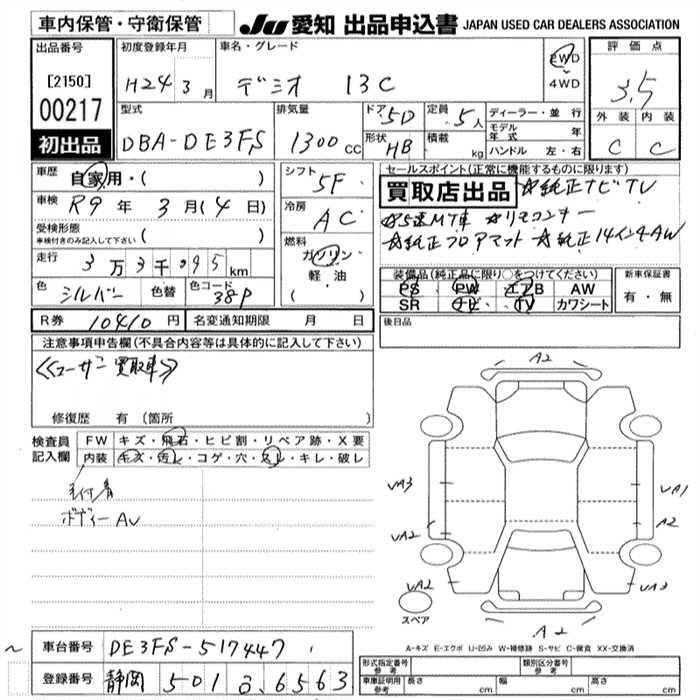 車内保管・守衛保管
JU 愛知 出品申込書 JAPAN USED CAR DEALERS ASSOCIATION
出品番号
[2150]
00217
初出品
初度登録年月
H24 3月
車名・グレード
デミオ 13C
2WD
4WD
評価点
3.5
外装 内装
C C
型式
DBA-DE3FS
排気量
1300cc
ドア 5D
形状 HB
定員 5人
積載 kg
ディーラー・並行
モデル年式 年
ハンドル 左・右
車歴
自家用・( )
車検 R9年 3月(4日)
受検形態
車検付きのみ記入して下さい ( )
走行 3万3千095km
色 シルバー 色替 色コード 38P
シフト
5F
冷房
AC
燃料
ガソリン
軽油
( )
セールスポイント(正常に機能するものに限ります)
買取店出品 ☆純正ナビTV
☆5速MT車 ☆リモコンキー
☆純正フロアマット ☆純正14インチAW
装備品(純正品に限り○をつけてください)
PS PW エアB AW
SR ナビ TV カワシート
新車保証書
有・無
R券 10410円 名変通知期限 月 日
後日品
注意事項申告欄(不具合内容等は具体的に記入して下さい)
≪ユーザー買取車≫
修復歴 有(箇所 )
検査員記入欄
FW キズ・飛石・ヒビ割・リペア跡・X要
内装 キズ・汚レ・コゲ・穴・スレ・キレ・破レ
ボディーAU
A2
UA3
UA2
UA2
UA1
A2
UA3
A2
スペア
A-キズ E-エクボ U-凹み W-補修跡 S-サビ C-腐食 XX-交換済
車台番号 DE3FS-517447
登録番号 静岡 501 る 6563
形式指定番号 参考
類別区分番号 参考
車庫証明用 参考 長さ cm 幅 cm 高さ cm